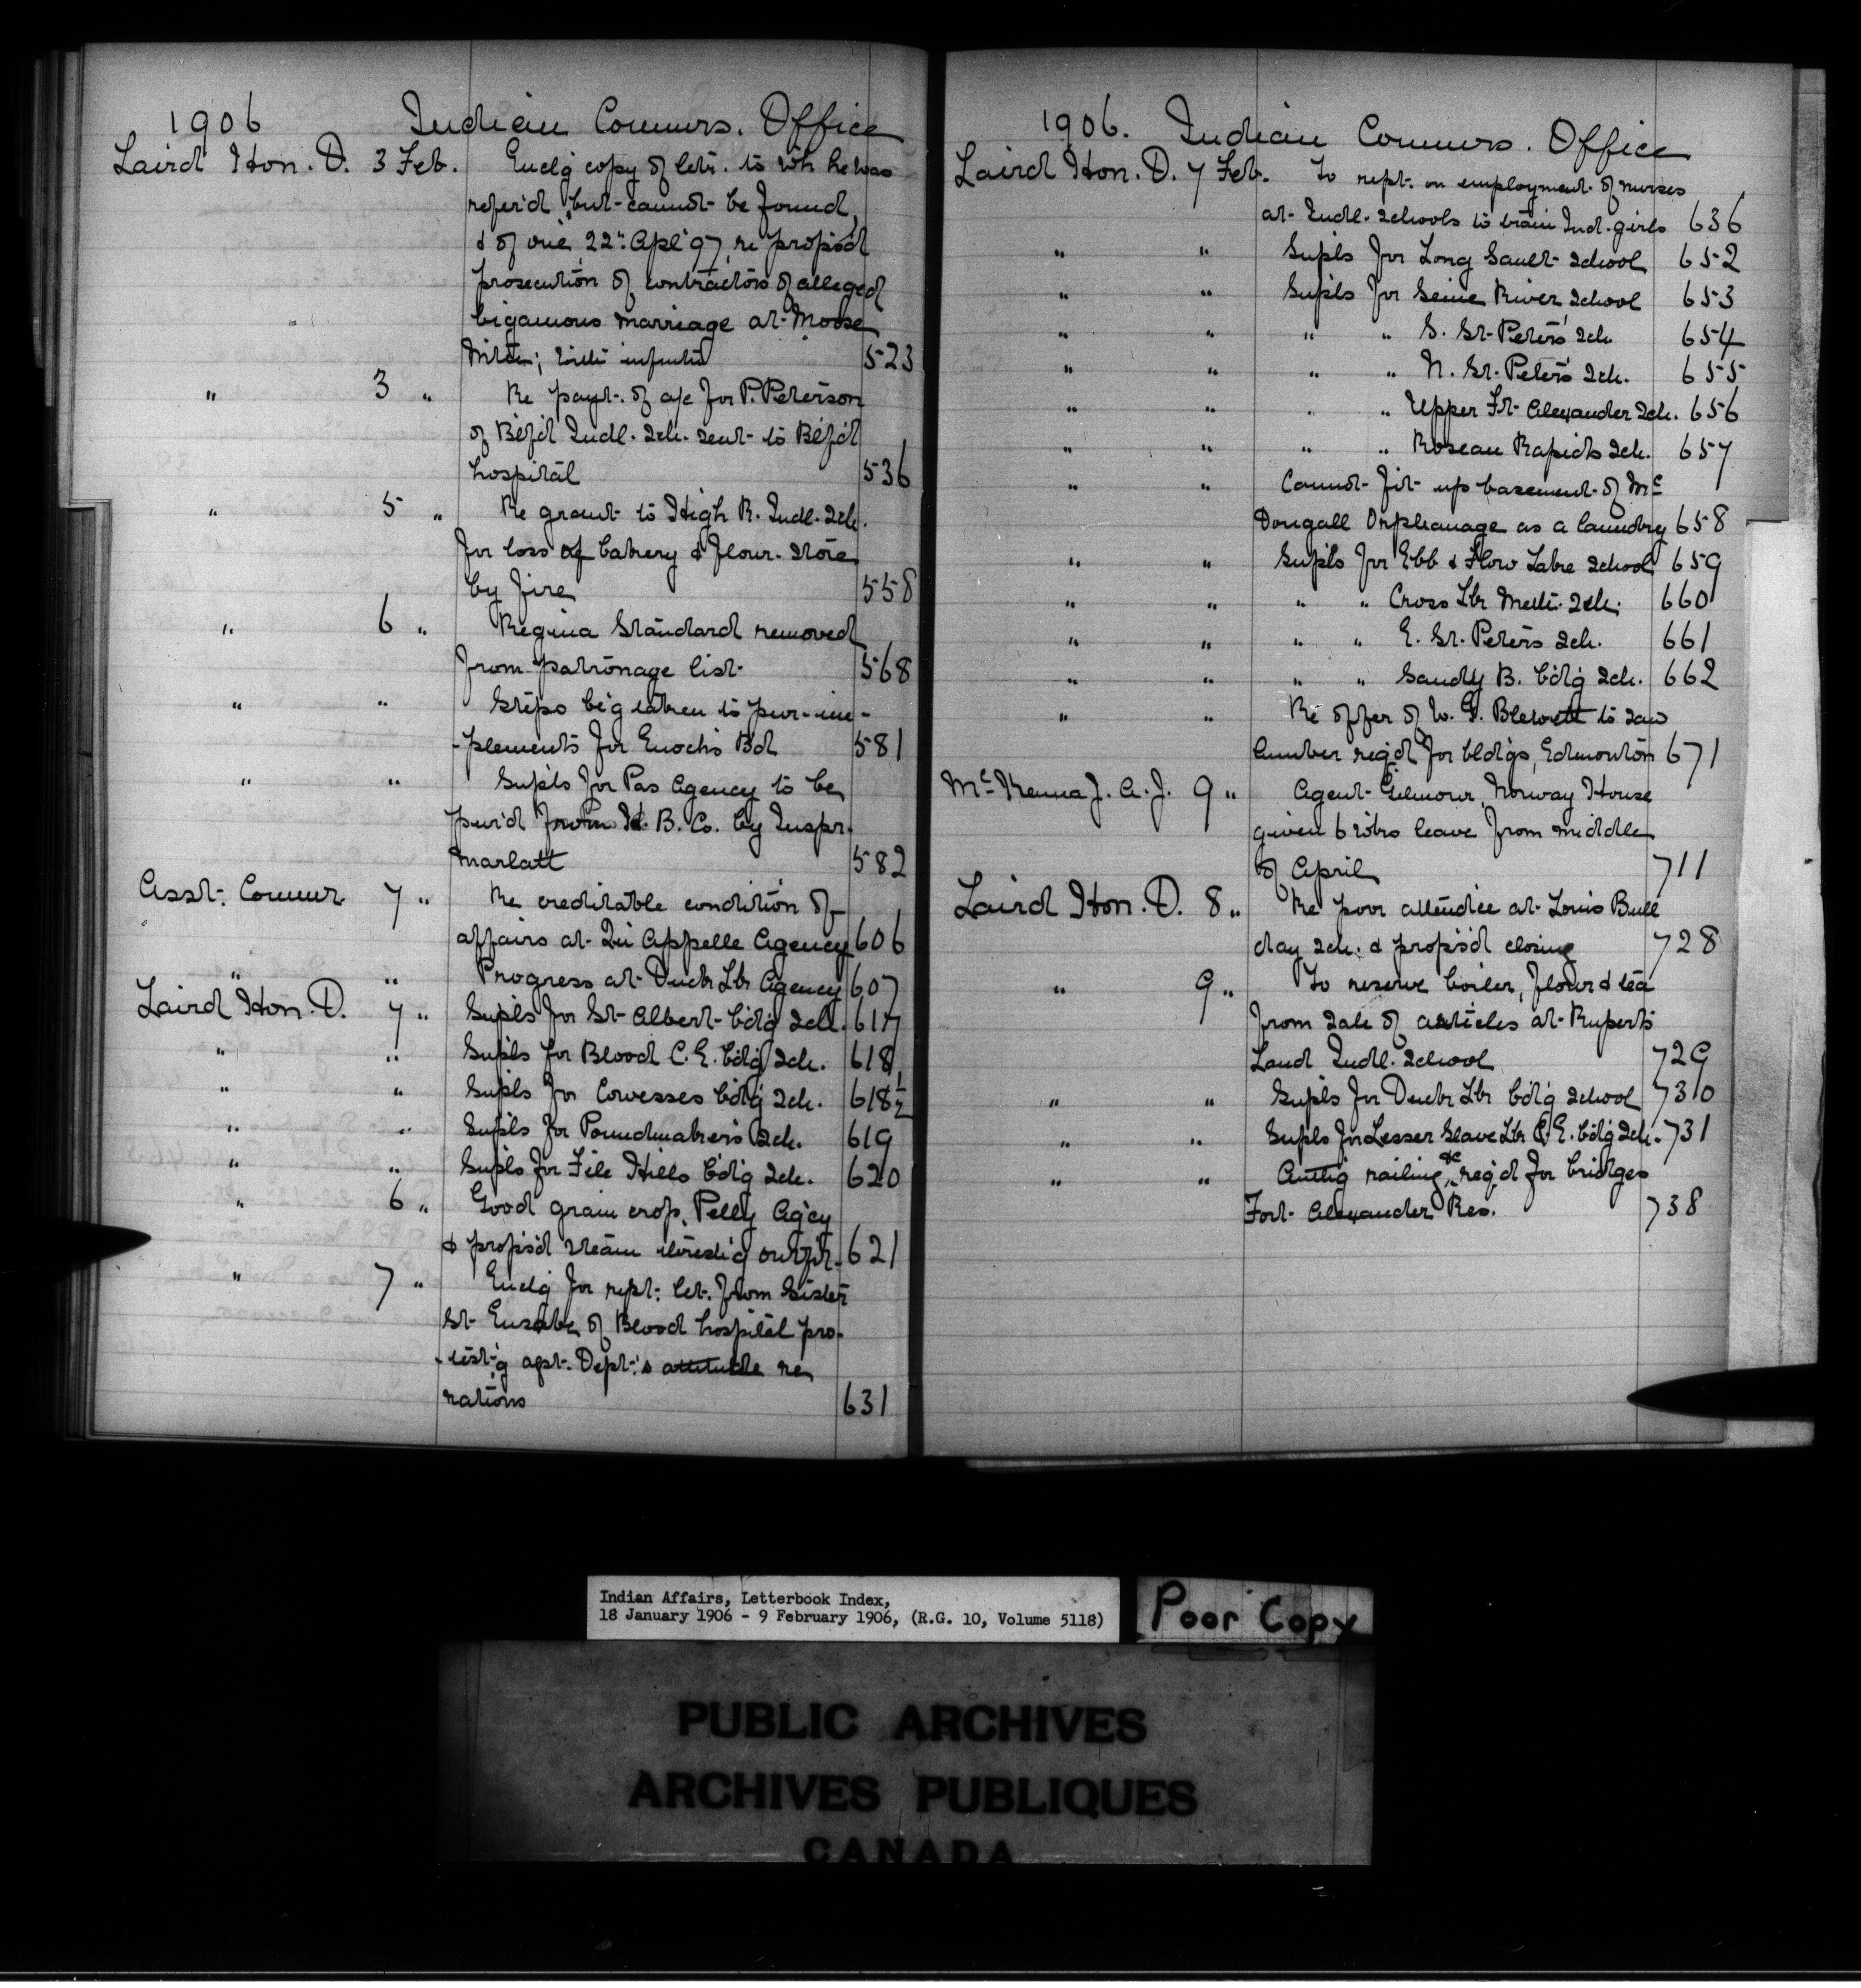 1906 Indian Commrs. Office
Laird Hon. D. 3 Feb. Enclg copy of letr. to wh he was
refer'd, but cannot be found,
& of one, 22" Apl '97, re propos'd
prosecution of contractors of alleged
bigamous marriage at Moose
523
" 3 " Re payt. of a/c for P. Peterson
of Bfd Indl. Sch. sent to Bfd
hospital 536
" 5 " Re grant to High R. Indl. Sch.
for loss of bakery & flour. Store
by fire 558
" 6 " Regina Standard removed
from patronage list 568
" " Steps b'g taken to pur. im-
-plements for Enoch's Bd 581
" " Supls for Pas Agency to be
pur'd from H. B. Co. by Inspr.
Marlatt 582
Asst. Commr. 7 " Re creditable condition of
affairs at Qu'Appelle Agency 606
" " Progress at Duck Lk Agency 607
Laird Hon. D. 7 " Supls for St. Albert b'd'g Sch. 617
" " Supls for Blood C. E. b'd'g Sch. 618
" " Supls for Cowesses b'd'g Sch. 618½
" " Supls for Poundmaker's Sch. 619
" " Supls for File Hills b'd'g Sch. 620
" 6 " Good grain crop, Pelly Ag'cy
& propos'd steam thresh'g outfit 621
" 7 " Enclg for rept. let. from Sister
St. of Blood hospital pro-
-test'g agst. Dept.'s attitude re
rations 631
1906. Indian Commrs. Office
Laird Hon. D. 7 Feb. To rept. on employment of nurses
at Indl. Schools to train Ind. girls 636
" " Supls for Long Sault School 652
" " Supls for Seine River School 653
" " " " S. St. Peter's Sch. 654
" " " " N. St. Peter's Sch. 655
" " " " Upper Ft. Alexander Sch. 656
" " " " Roseau Rapids Sch. 657
" " Cannot fit up basement of Mc
Dougall Orphanage as a laundry 658
" " Supls for Ebb & Flow Lake School 659
" " " " Cross Lk Meth. Sch. 660
" " " " E. St. Peter's Sch. 661
" " " " Sandy B. b'd'g Sch. 662
" " Re offer of W. G. Blewett to saw
lumber req'd for bld'gs, Edmonton 671
McKenna J. A. J. 9 " Agent Gilmour, Norway House
given 6 wks leave from middle
of April 711
Laird Hon. D. 8 " Re poor attend'ce at Louis Bull
day sch. & propos'd closing 728
" 9 " To reserve boiler, flour & tea
from sale of articles at Rupert's
Land Indl. School 729
" " Supls for Duck Lk b'd'g School 730
" " Supls for Lesser Slave Lk C. E. b'd'g Sch. 731
" " railing &c req'd for bridges
Fort Alexander Res. 738
Indian Affairs, Letterbook Index,
18 January 1906 - 9 February 1906, (R.G. 10, Volume 5118)
Poor Copy
PUBLIC ARCHIVES
ARCHIVES PUBLIQUES
CANADA